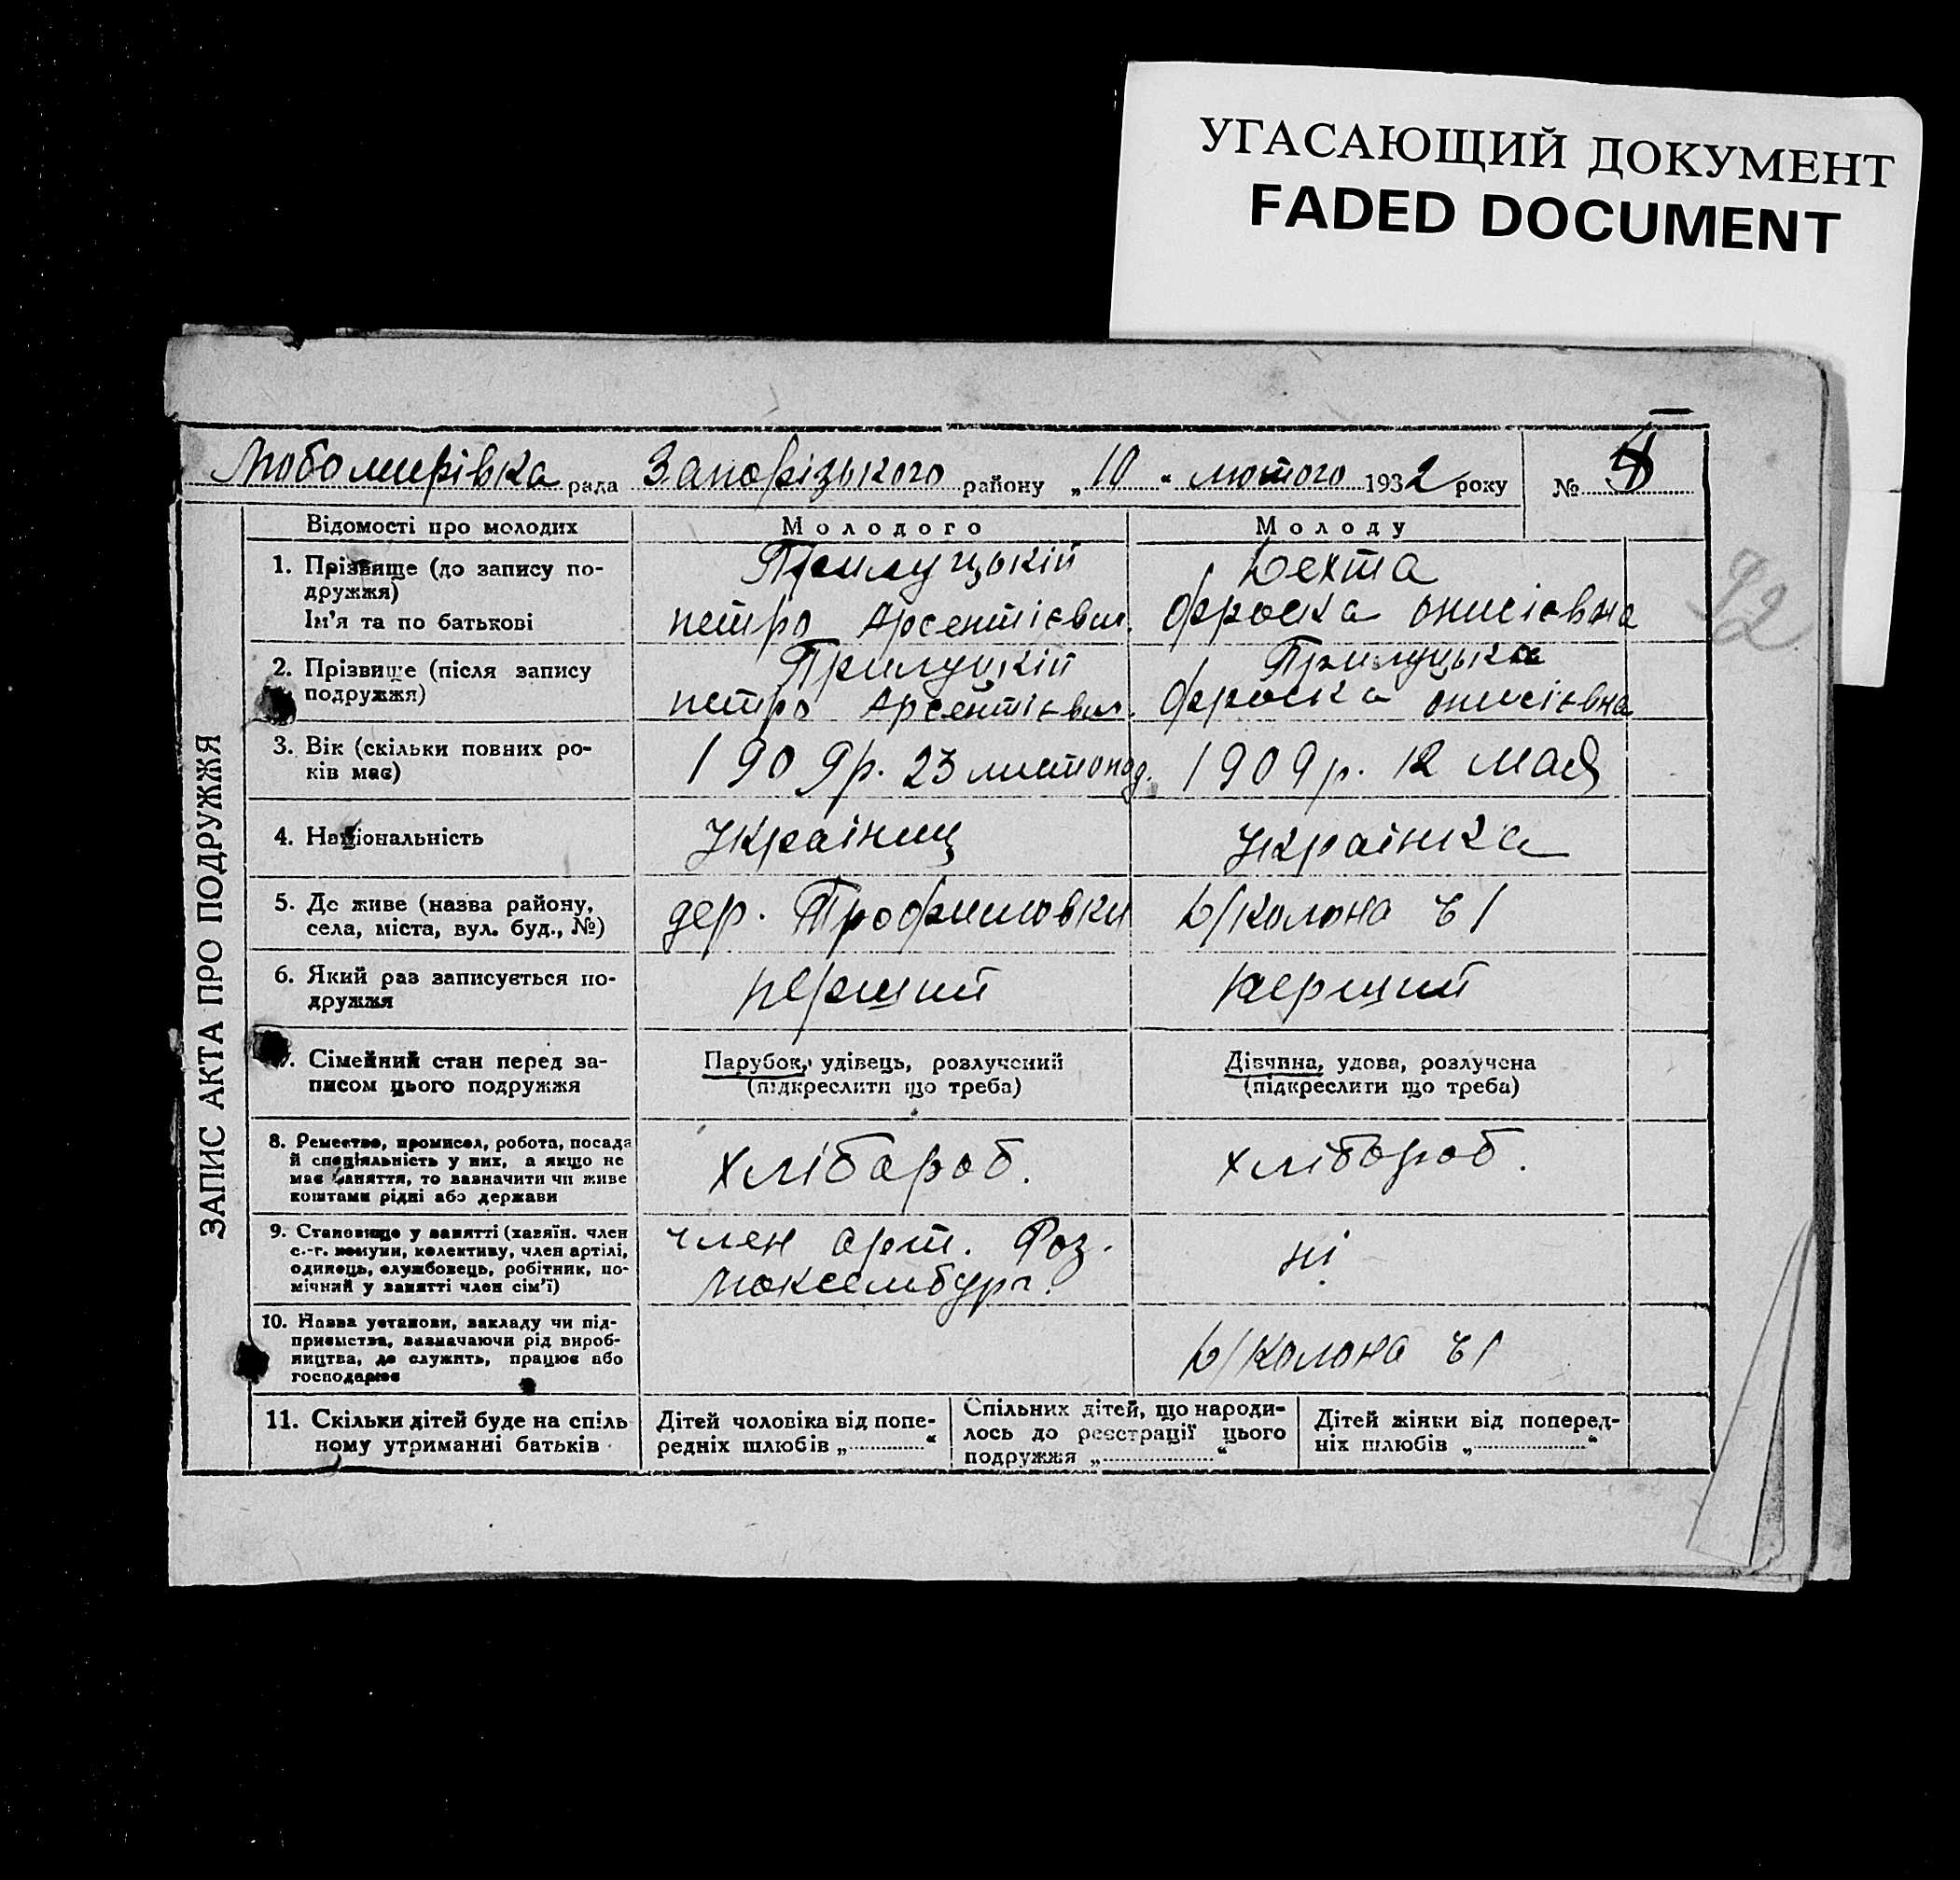 УГАСАЮЩИЙ ДОКУМЕНТ
FADED DOCUMENT
Любомирівка рада Запорізького району „10“ лютого 1932 року №
92
ЗАПИС АКТА ПРО ПОДРУЖЖЯ
Відомості про молодих Молодого Молоду
1. Прізвище (до запису по-
дружжя)
Ім'я та по батькові
Прилуцькій
петро Арсентієвич.
Дехта
фроска онисієвна
2. Прізвище (після запису
подружжя)
Прилуцкій
петро Арсентієвич.
Прилуцька
фроска онисієвна
3. Вік (скільки повних ро-
ків має)
1909р. 23 листопад.
1909р. 12 мая
4. Національність
Українец
Українка
5. Де живе (назва району,
села, міста, вул. буд., №)
дер. Трофимовки
Колона ч 1
6. Який раз записується по-
дружжя
перший
перший
7. Сімейний стан перед за-
писом цього подружжя
Парубок, удівець, розлучений
(підкреслити що треба)
Дівчина, удова, розлучена
(підкреслити що треба)
8. Ремество, промисел, робота, посада
й спеціяльність у них, а якщо не
має заняття, то зазначити чи живе
коштами рідні або держави
хлібароб.
хлібороб.
9. Становище у занятті (хазяїн. член
с.-г. комуни, колективу, член артілі,
одинець, службовець, робітник, по-
мічний у занятті член сім'ї)
член арт. Роз.
Люксембург.
ні
10. Назва установи, закладу чи під-
приємства, зазначаючи рід вироб-
ництва, де служить, працює або
господарює
Колона ч 1
11. Скільки дітей буде на спіль
ному утриманні батьків
Дітей чоловіка від попе-
редніх шлюбів „............“
Спільних дітей, що народи-
лось до реєстрації цього
подружжя „..................“
Дітей жінки від поперед-
ніх шлюбів „..................“